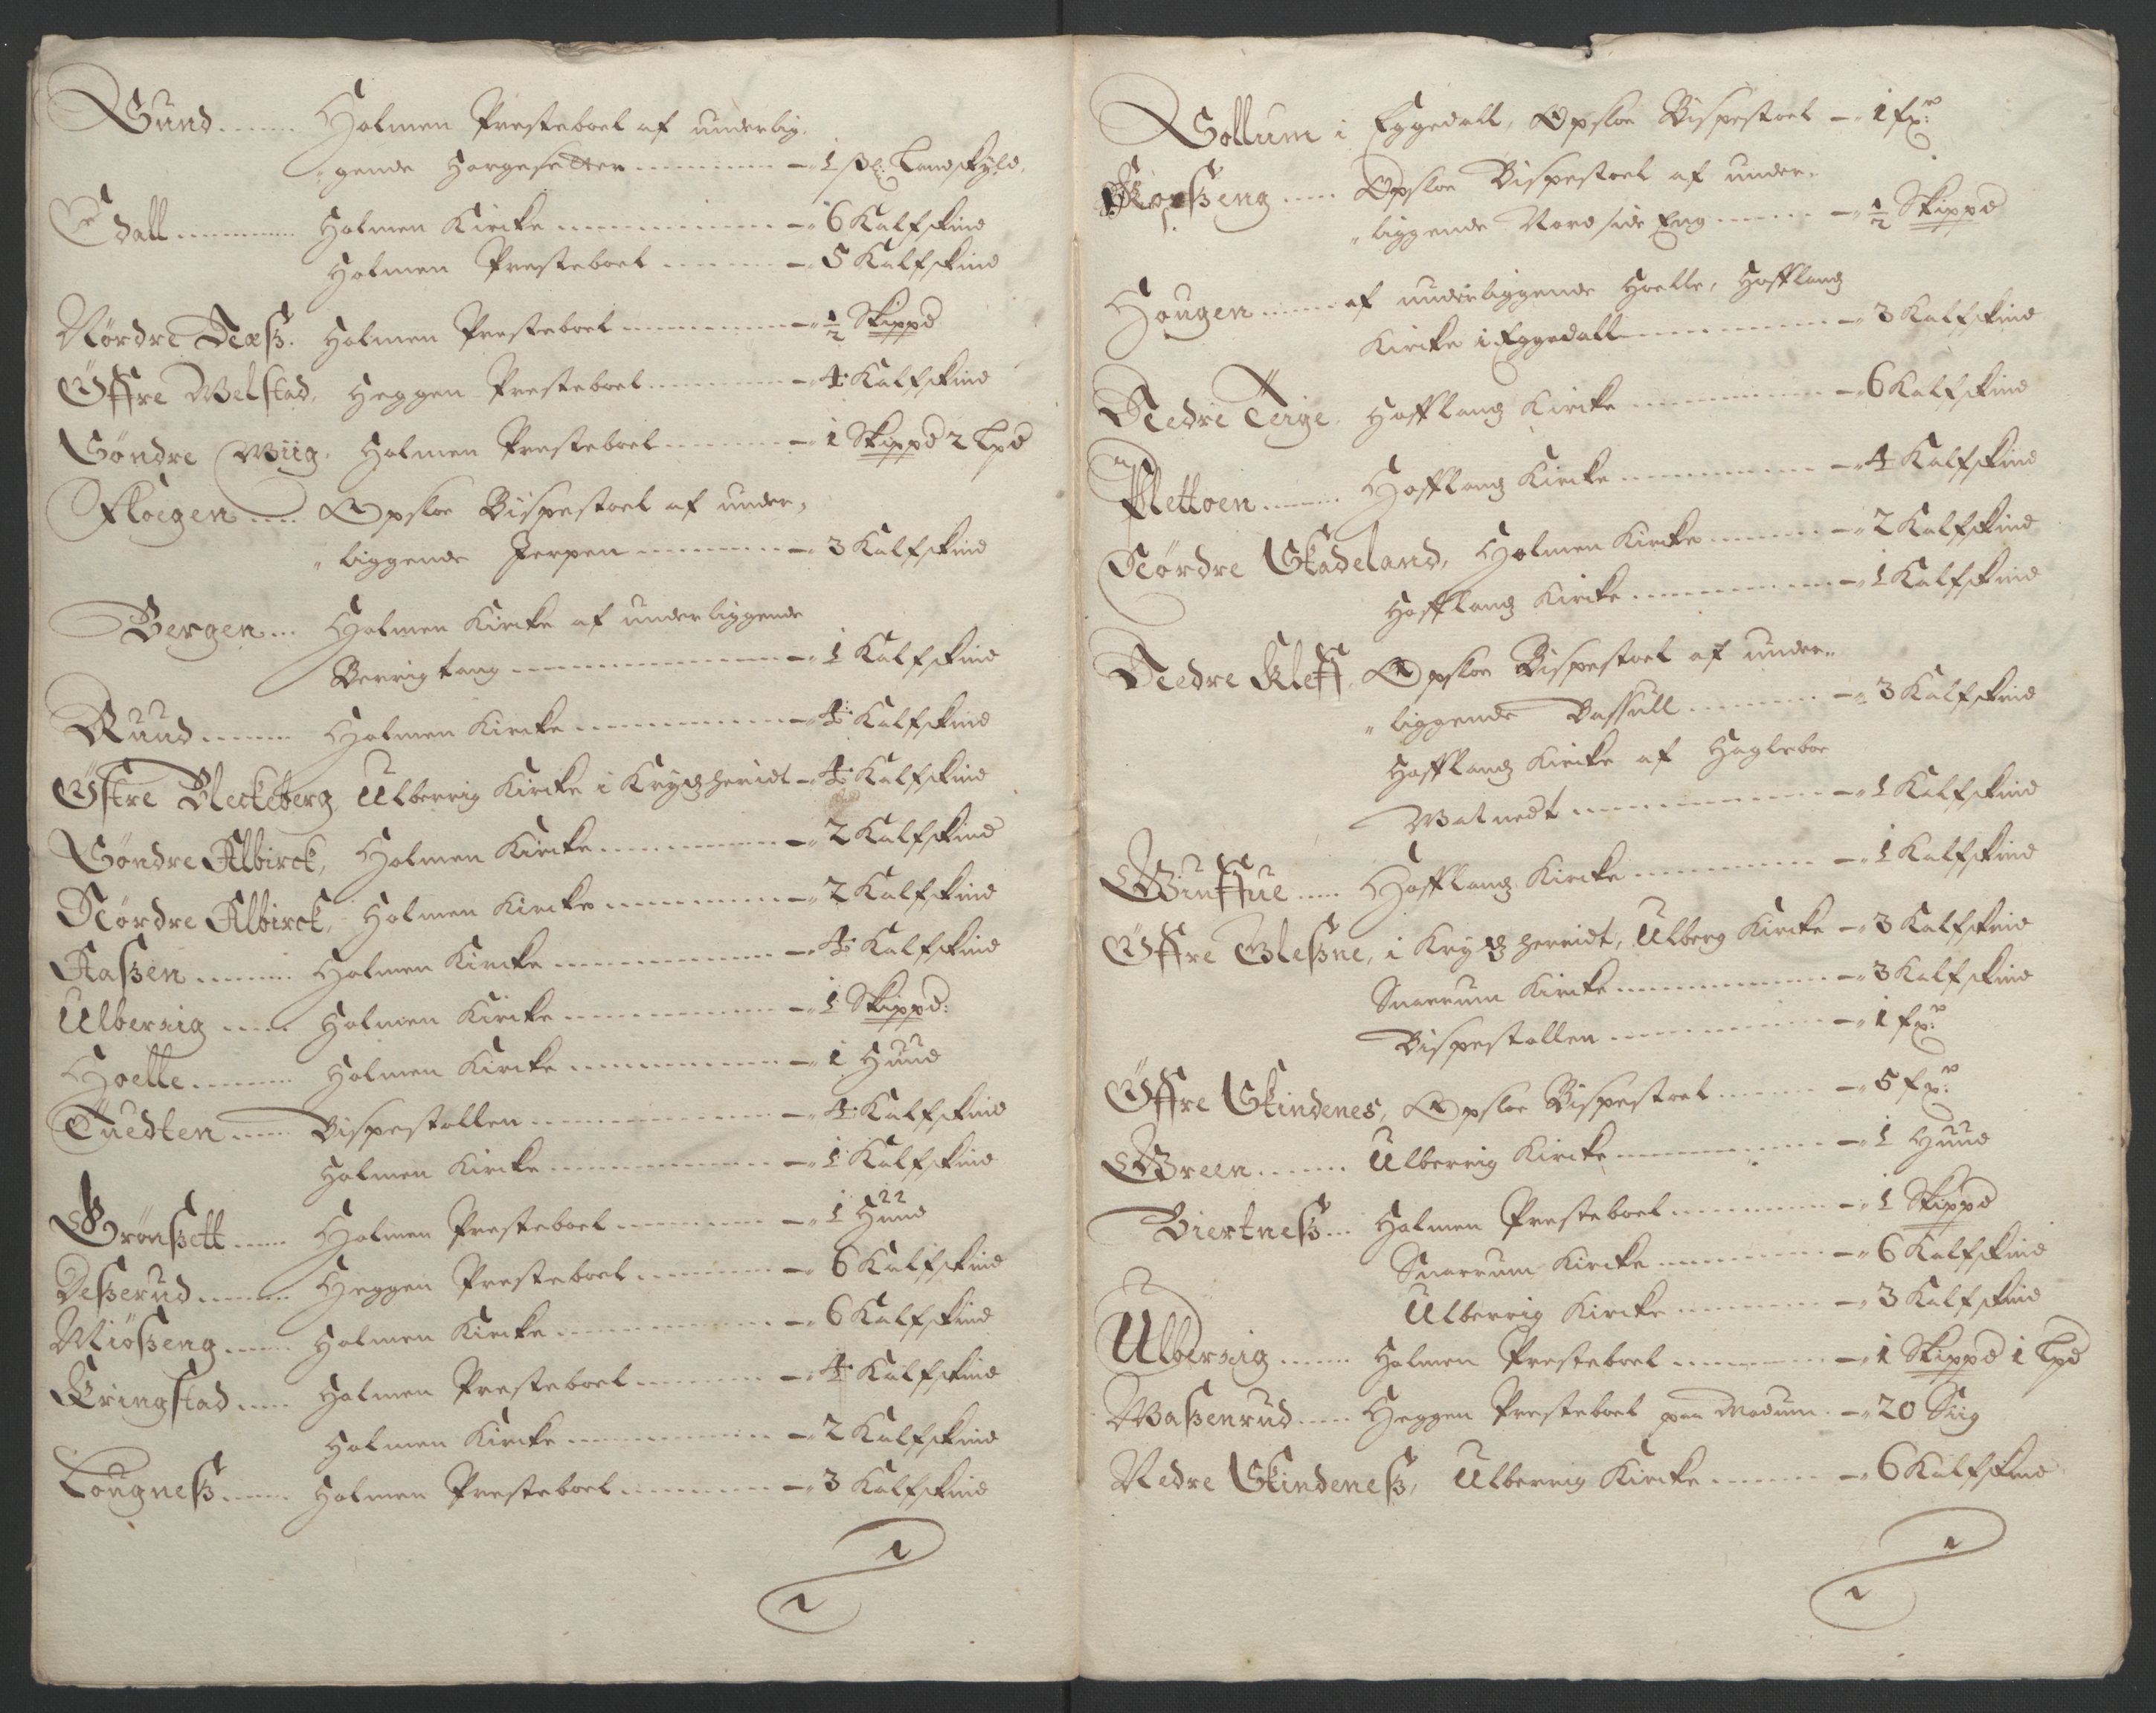 Sund ........ Holmen Presteboel af underlig,
„gende Horgesetter ........ – 1 ßl: Landskyld,
Edall ........ Holmen Kircke ........ – 6 Kalfskind
Holmen Presteboel ........ – 5 Kalfskind
Nørdre Dæß. Holmen Presteboel ........ – ½ Skippd
Øffre Melstad, Heggen Presteboel ........ – 4 Kalfskind
Søndre Wiig, Holmen Presteboel ........ – 1 Skippd 2 Lpd
Floegen .... Opsloe Bispestoel af under,
„liggende Jerpen ........ – 3 Kalfskind
Bergen ... Holmen Kircke af underliggende
Berrigtang ........ – 1 Kalfskind
Ruud ........ Holmen Kircke ........ – 4 Kalfskind
Østre Bleckeberg, Ulberrig Kircke i Krydtzheridt – 4 Kalfskind
Søndre Albirck, Holmen Kircke ........ – 2 Kalfskind
Nørdre Albirck, Holmen Kircke ........ – 2 Kalfskind
Aaßen ........ Holmen Kircke ........ – 4 Kalfskind
Ulberrig ..... Holmen Kircke ........ – 1 Skippd:
Hoelle ........ Holmen Kircke ........ – 1 Huud
Tuedten ..... Bispestollen ........ – 4 Kalfskind
Holmen Kircke ........ – 1 Kalfskind
Grønßett ..... Holmen Presteboel ........ – 1 Huud
Deßerud ........ Heggen Presteboel ........ – 6 Kalfskind
Miößeng ...... Holmen Kircke ........ – 6 Kalfskind
Kringstad ..... Holmen Presteboel ........ – 4 Kalfskind
Holmen Kircke ........ – 2 Kalfskind
Lougneß ...... Holmen Presteboel ........ – 3 Kalfskind
Sollum i Eggedall, Opsloe Bispestoel – 1 fxr:
Korßeng ..... Opsloe Bispestoel af under,
„liggende Nordside Eng ........ – ½ Skippd
Hougen ...... af underliggende Hoelle, Hofflandz
Kircke i Eggedall ........ – 3 Kalfskind
Nedre Teige, Hofflandz Kircke ........ – 6 Kalfskind
Flettoen ....... Hofflandz Kircke ........ – 4 Kalfskind
Nørdre Skadeland, Holmen Kircke ........ – 2 Kalfskind
Hofflandz Kircke ........ – 1 Kalfskind
Nedre Kleff, Opsloe Bispestoel af under„
„liggende Bassull ........ – 3 Kalfskind
Hofflandz Kircke af Hagleboe
Watnedt ........ – 1 Kalfskind
Winffue ..... Hofflandz Kircke ........ – 1 Kalfskind
Øffre Gleßne, i Krydtzherridt, Ulberg Kircke – 3 Kalfskind
Snarrum Kircke ........ – 3 Kalfskind
Bispestollen ........ – 1 fxr:
Øffre Skindenes, Opsloe Bispestoel ........ – 5 fxr:
Green ....... Ulberrig Kircke ........ – 1 Huud
Biertneß ... Holmen Presteboel ........ – 1 Skippd
Snarrum Kircke ........ – 6 Kalfskind
Ulberrig Kircke ........ – 3 Kalfskind
Ulberrig ...... Holmen Presteboel ........ – 1 Skippd 1 Lpd
Maßenrud ..... Heggen Presteboel paa Modum. – 20 Siig
Nedre Skindeneß, Ulberrig Kircke ........ – 6 Kalfskind